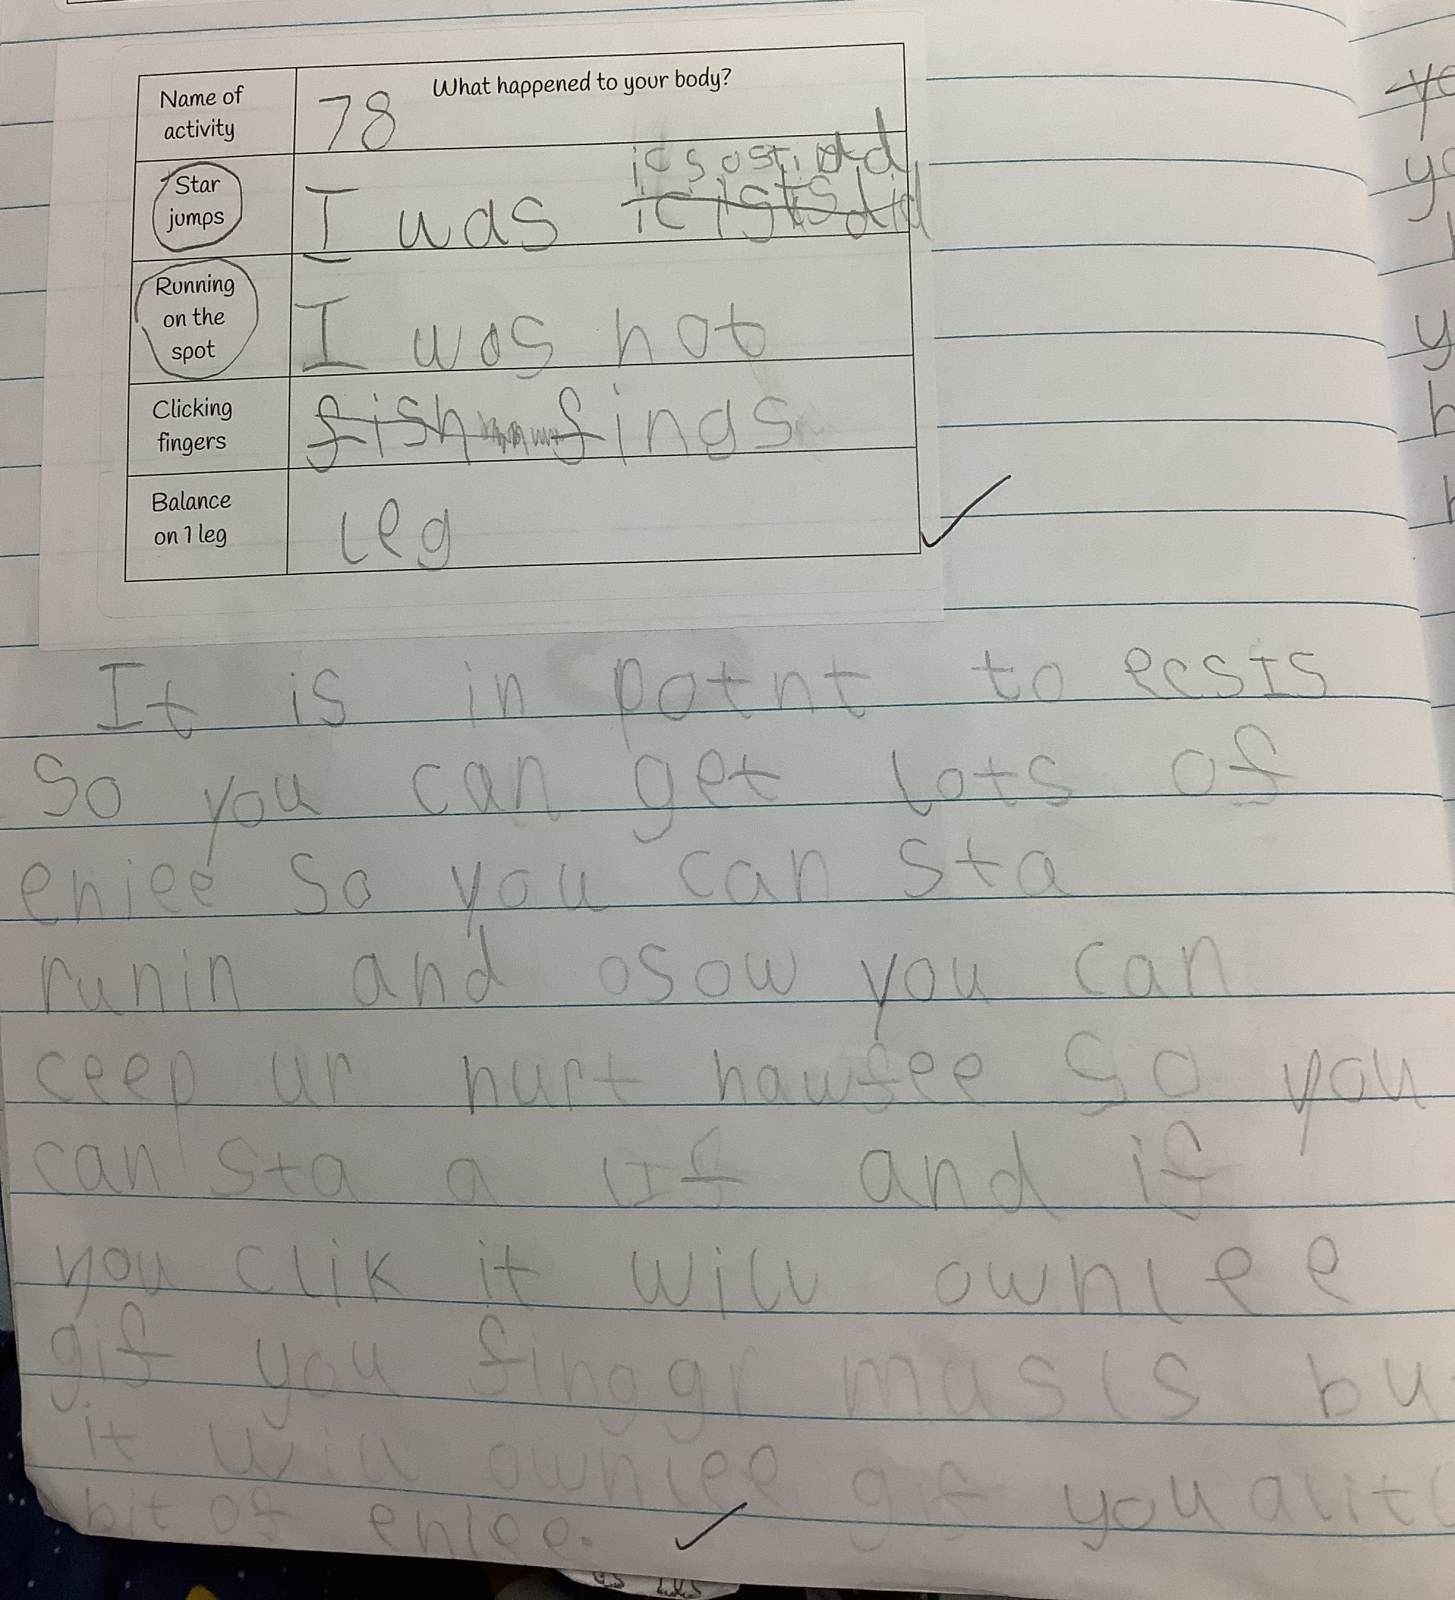 Name of activity
What happened to your body?
78
Star jumps
I was icsostidd
Running on the spot
I was hot
Clicking fingers
fish fings
Balance on 1 leg
leg
It is in potnt to ecsIs
So you can get lots of
eniee so you can sta
runin and osow you can
ceep ur hurt hawfee so you
can sta a lIf and if
you clik it will ownlee
gif you finggr musls bu
it will ownlee gif you a litl
bit of enlee.